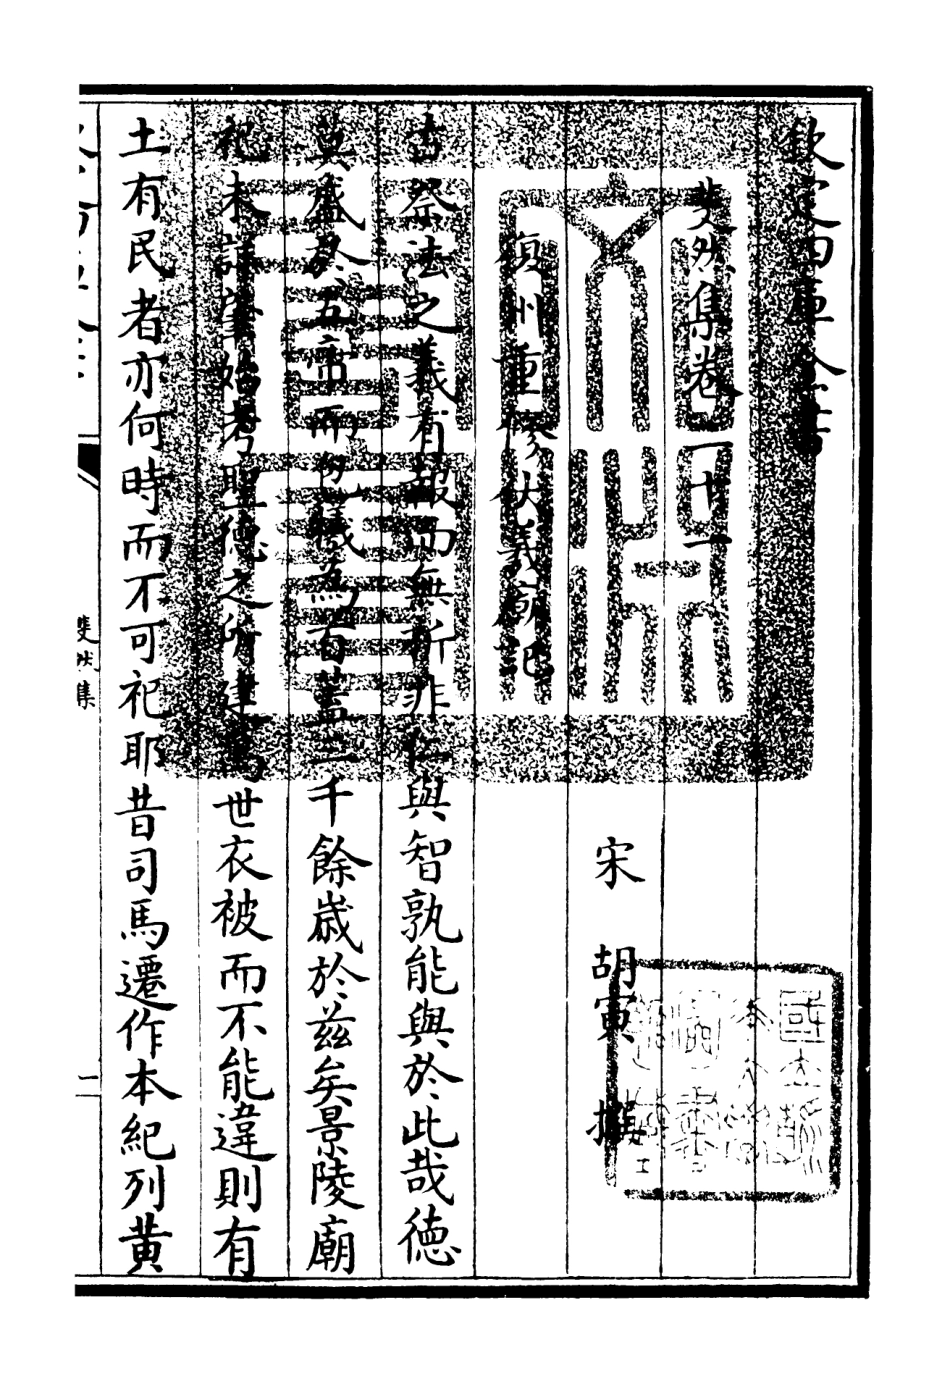 欽定四庫全書
斐然集卷二十一
宋 胡寅 撰
復州重修伏羲廟記
古祭法之義有報而無祈非仁與智孰能與於此哉德
莫盛於五帝而伏羲為首蓋三千餘歲於茲矣景陵廟
祀未詳肇始考聖德之所建萬世衣被而不能違則有
土有民者亦何時而不可祀耶昔司馬遷作本紀列黃
斐然集